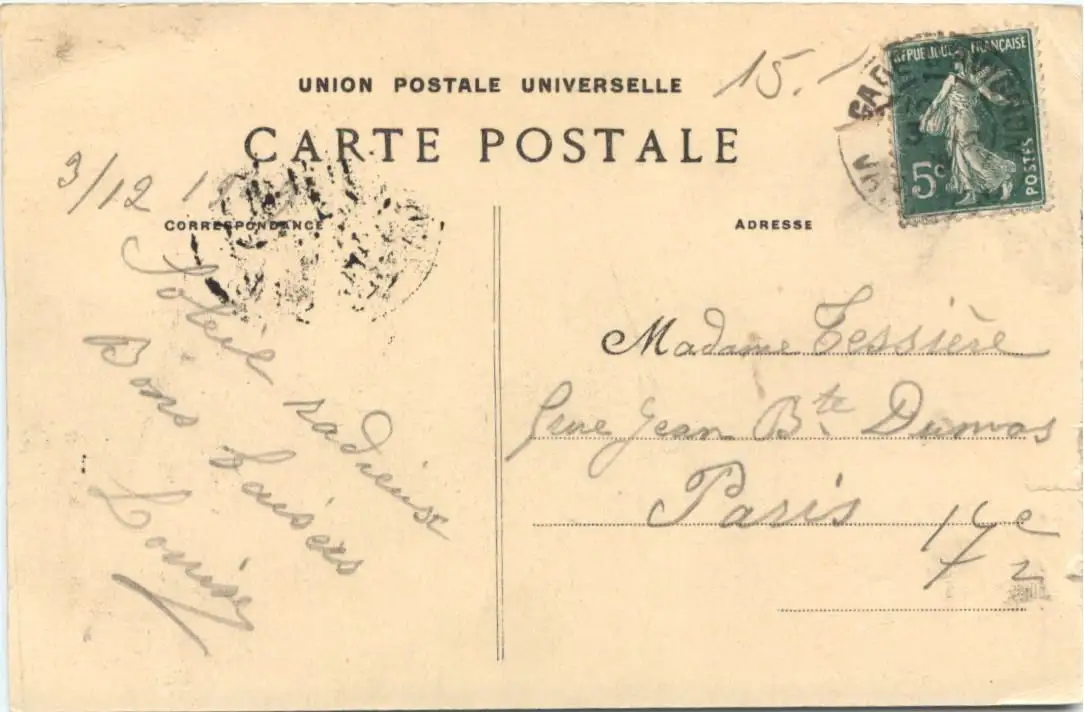 UNION POSTALE UNIVERSELLE
CARTE POSTALE
15.
RÉPUBLIQUE FRANÇAISE
5c
POSTES
GARE
AVIGNON
3/12
CORRESPONDANCE
Soleil radieuse
Bons baisers
Louise
ADRESSE
Madame Tessière
Rue Jean Bte Dumas
Paris 17e